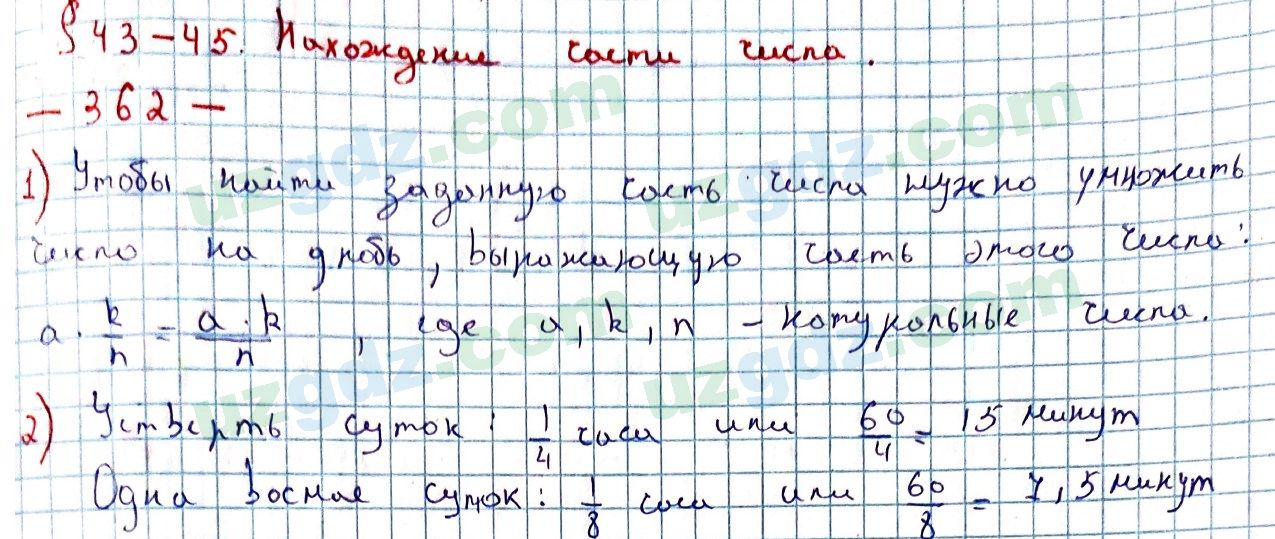 § 43-45. Нахождение части числа.
- 362 -
1) Чтобы найти заданную часть числа нужно умножить
число на дробь, выражающую часть этого числа:
a · k/n = a · k/n, где a, k, n - натуральные числа.
2) Четверть суток: 1/4 часа или 60/4 = 15 минут
Одна восмае суток: 1/8 часа или 60/8 = 7,5 минут
uzgdz.com
uzgdz.com
uzgdz.com
uzgdz.com